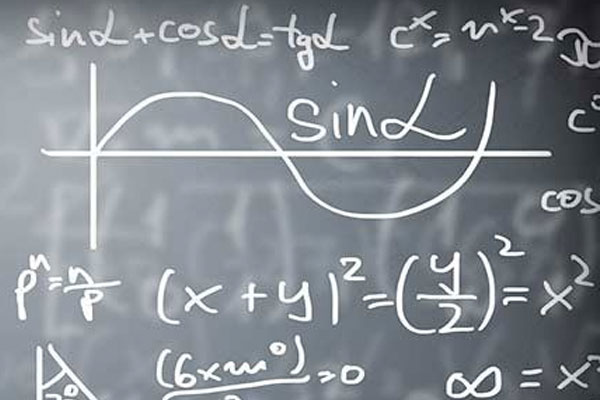 sinα+cosα=tgα c^x=n^x-2
sinα
c
cos
p^n=n/p (x+y)^2=(y/2)^2=x^2
(6xm^0) =0 ∞=x